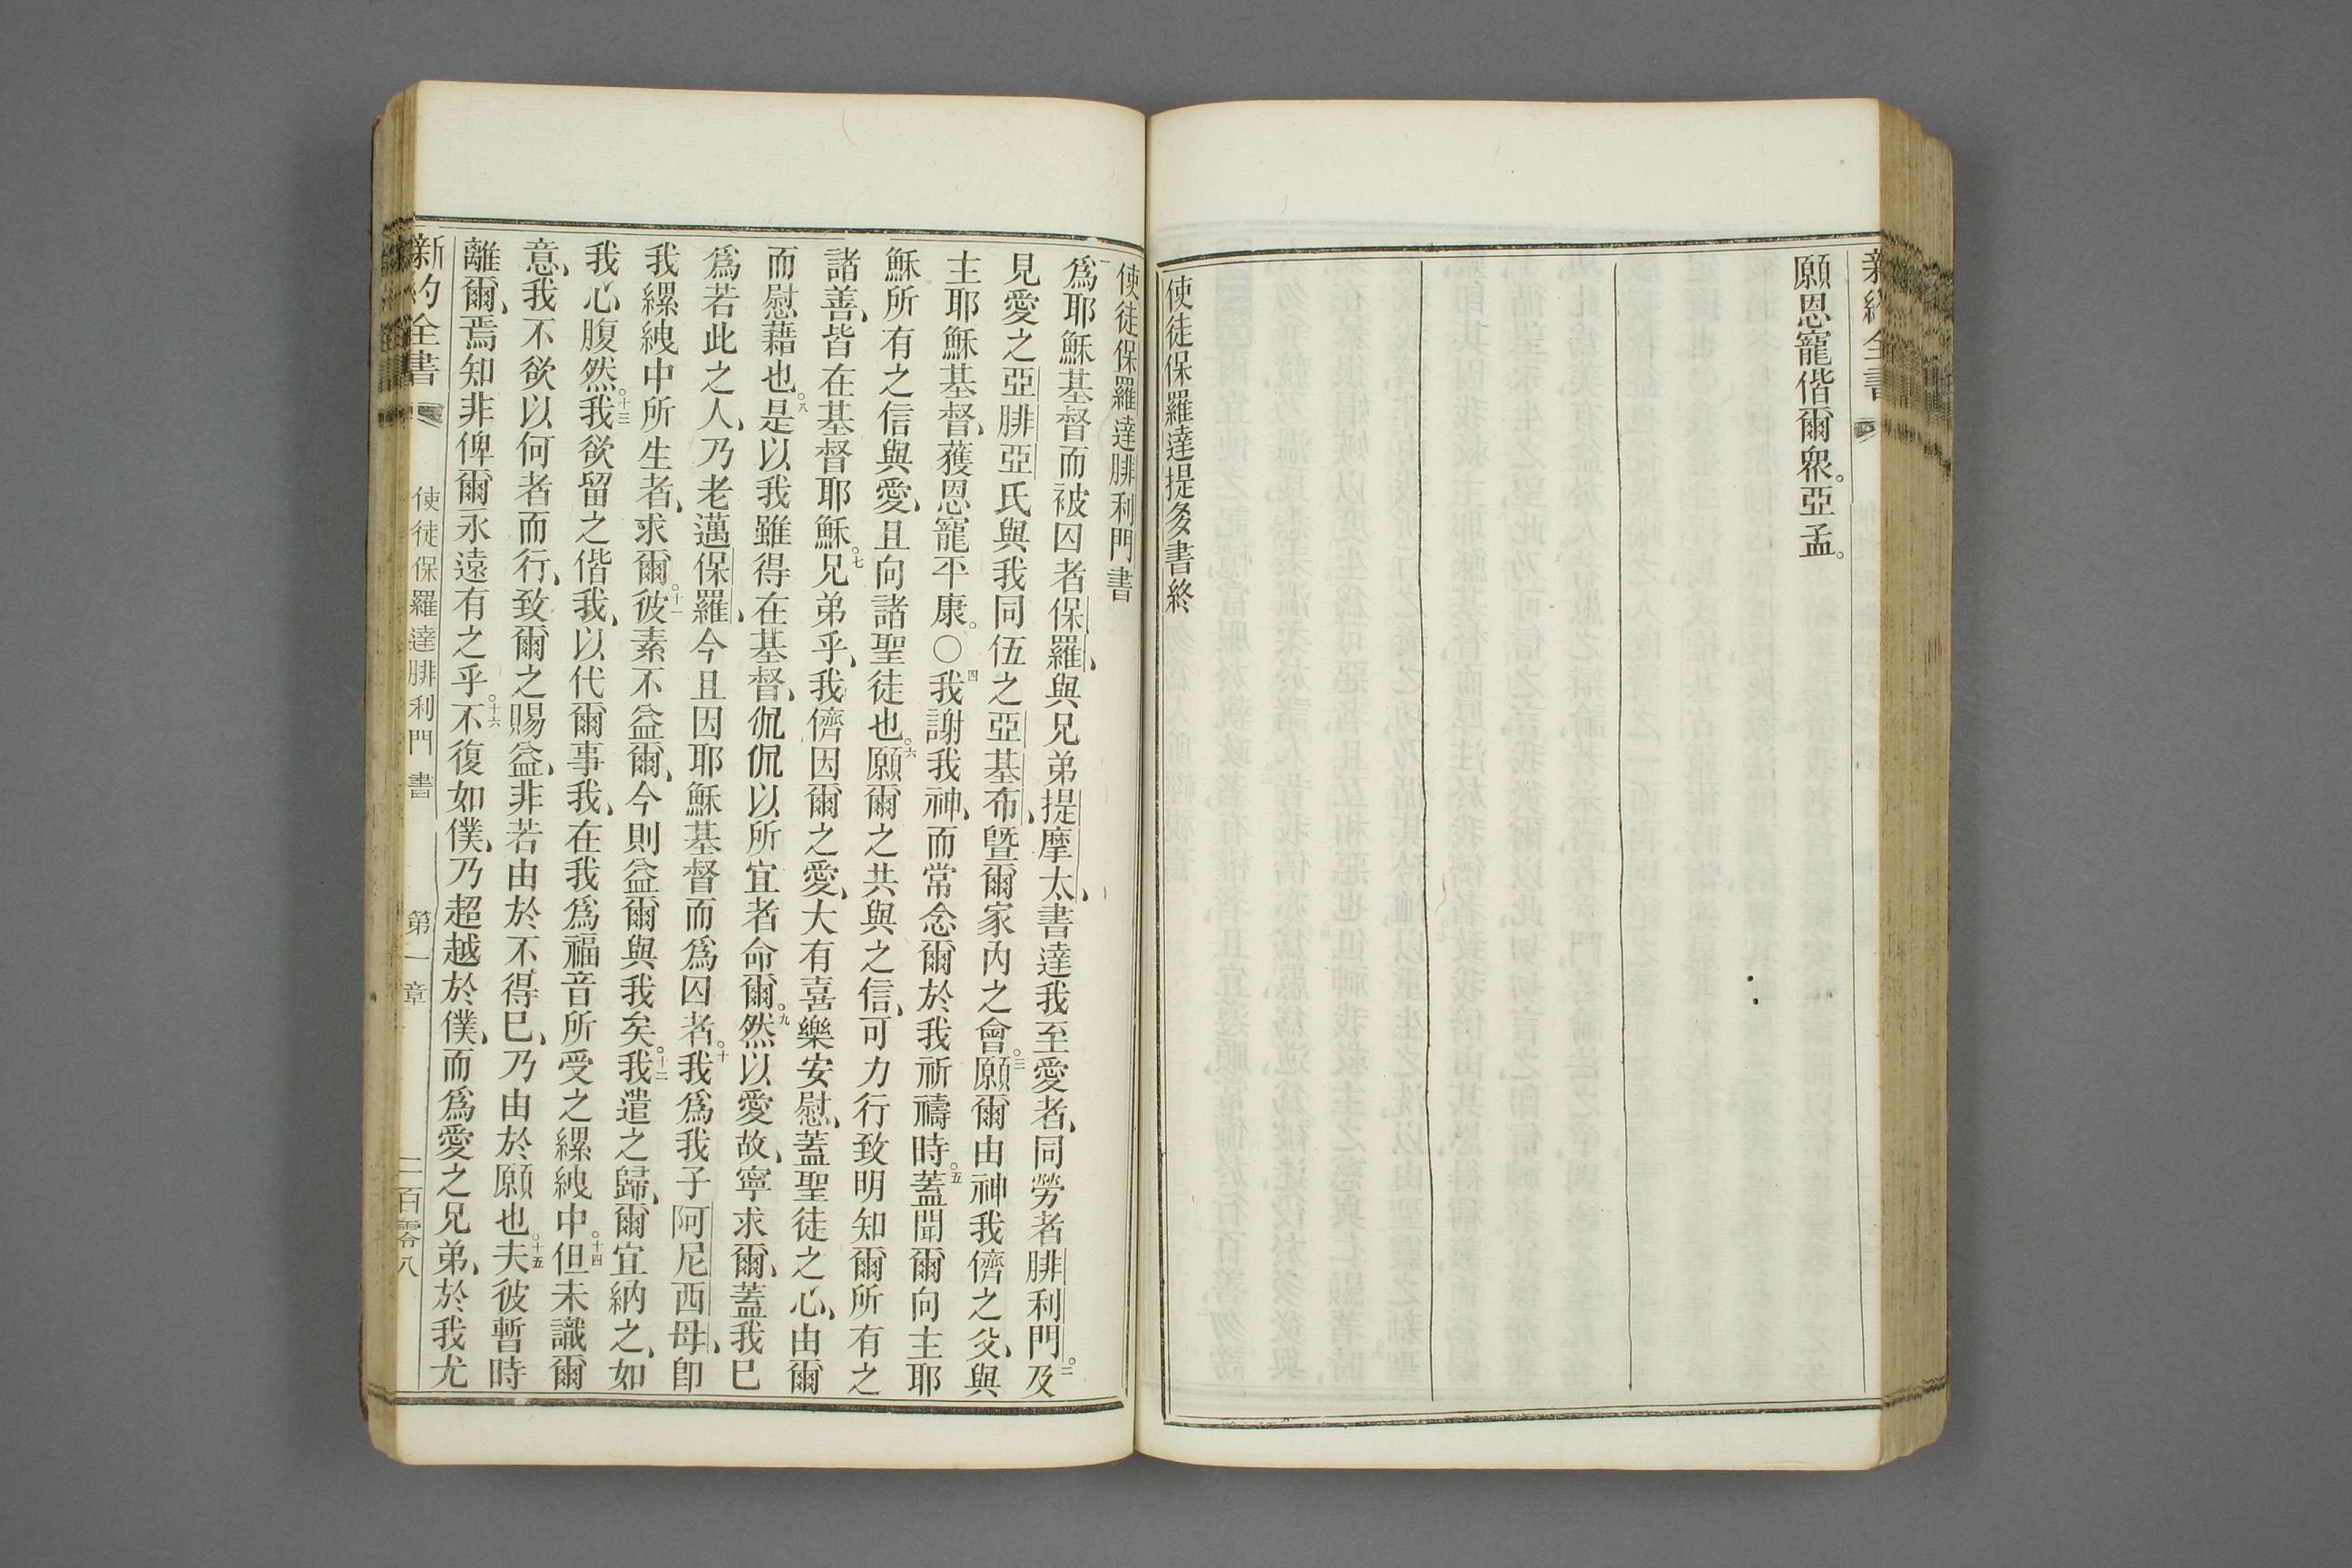 新約全書
願恩寵偕爾衆。亞孟。
使徒保羅達提多書終
使徒保羅達腓利門書
爲耶穌基督而被囚者保羅、與兄弟提摩太、書達我至愛者、同勞者腓利門。二及
見愛之亞腓亞氏與我同伍之亞基布、曁爾家內之會。三願爾由神我儕之父、與
主耶穌基督、獲恩寵平康。〇四我謝我神、而常念爾於我祈禱時。五蓋聞爾向主耶
穌所有之信與愛、且向諸聖徒也。六願爾之共與之信、可力行致明知爾所有之
諸善、皆在基督耶穌。七兄弟乎、我儕因爾之愛、大有喜樂安慰、蓋聖徒之心、由爾
而慰藉也。八是以我雖得在基督、侃侃以所宜者命爾。九然以愛故、寧求爾、蓋我巳
爲若此之人、乃老邁保羅、今且因耶穌基督而爲囚者。十我爲我子阿尼西母、卽
我縲絏中所生者、求爾。十一彼素不益爾、今則益爾與我矣。十二我遣之歸、爾宜納之、如
我心腹然。十三我欲留之偕我、以代爾事我、在我爲福音所受之縲絏中。十四但未識爾
意、我不欲以何者而行、致爾之賜益、非若由於不得巳、乃由於願也。十五夫彼暫時
離爾、焉知非俾爾永遠有之乎。十六不復如僕、乃超越於僕、而爲愛之兄弟、於我尤
新約全書 使徒保羅達腓利門書 第一章 二百零八